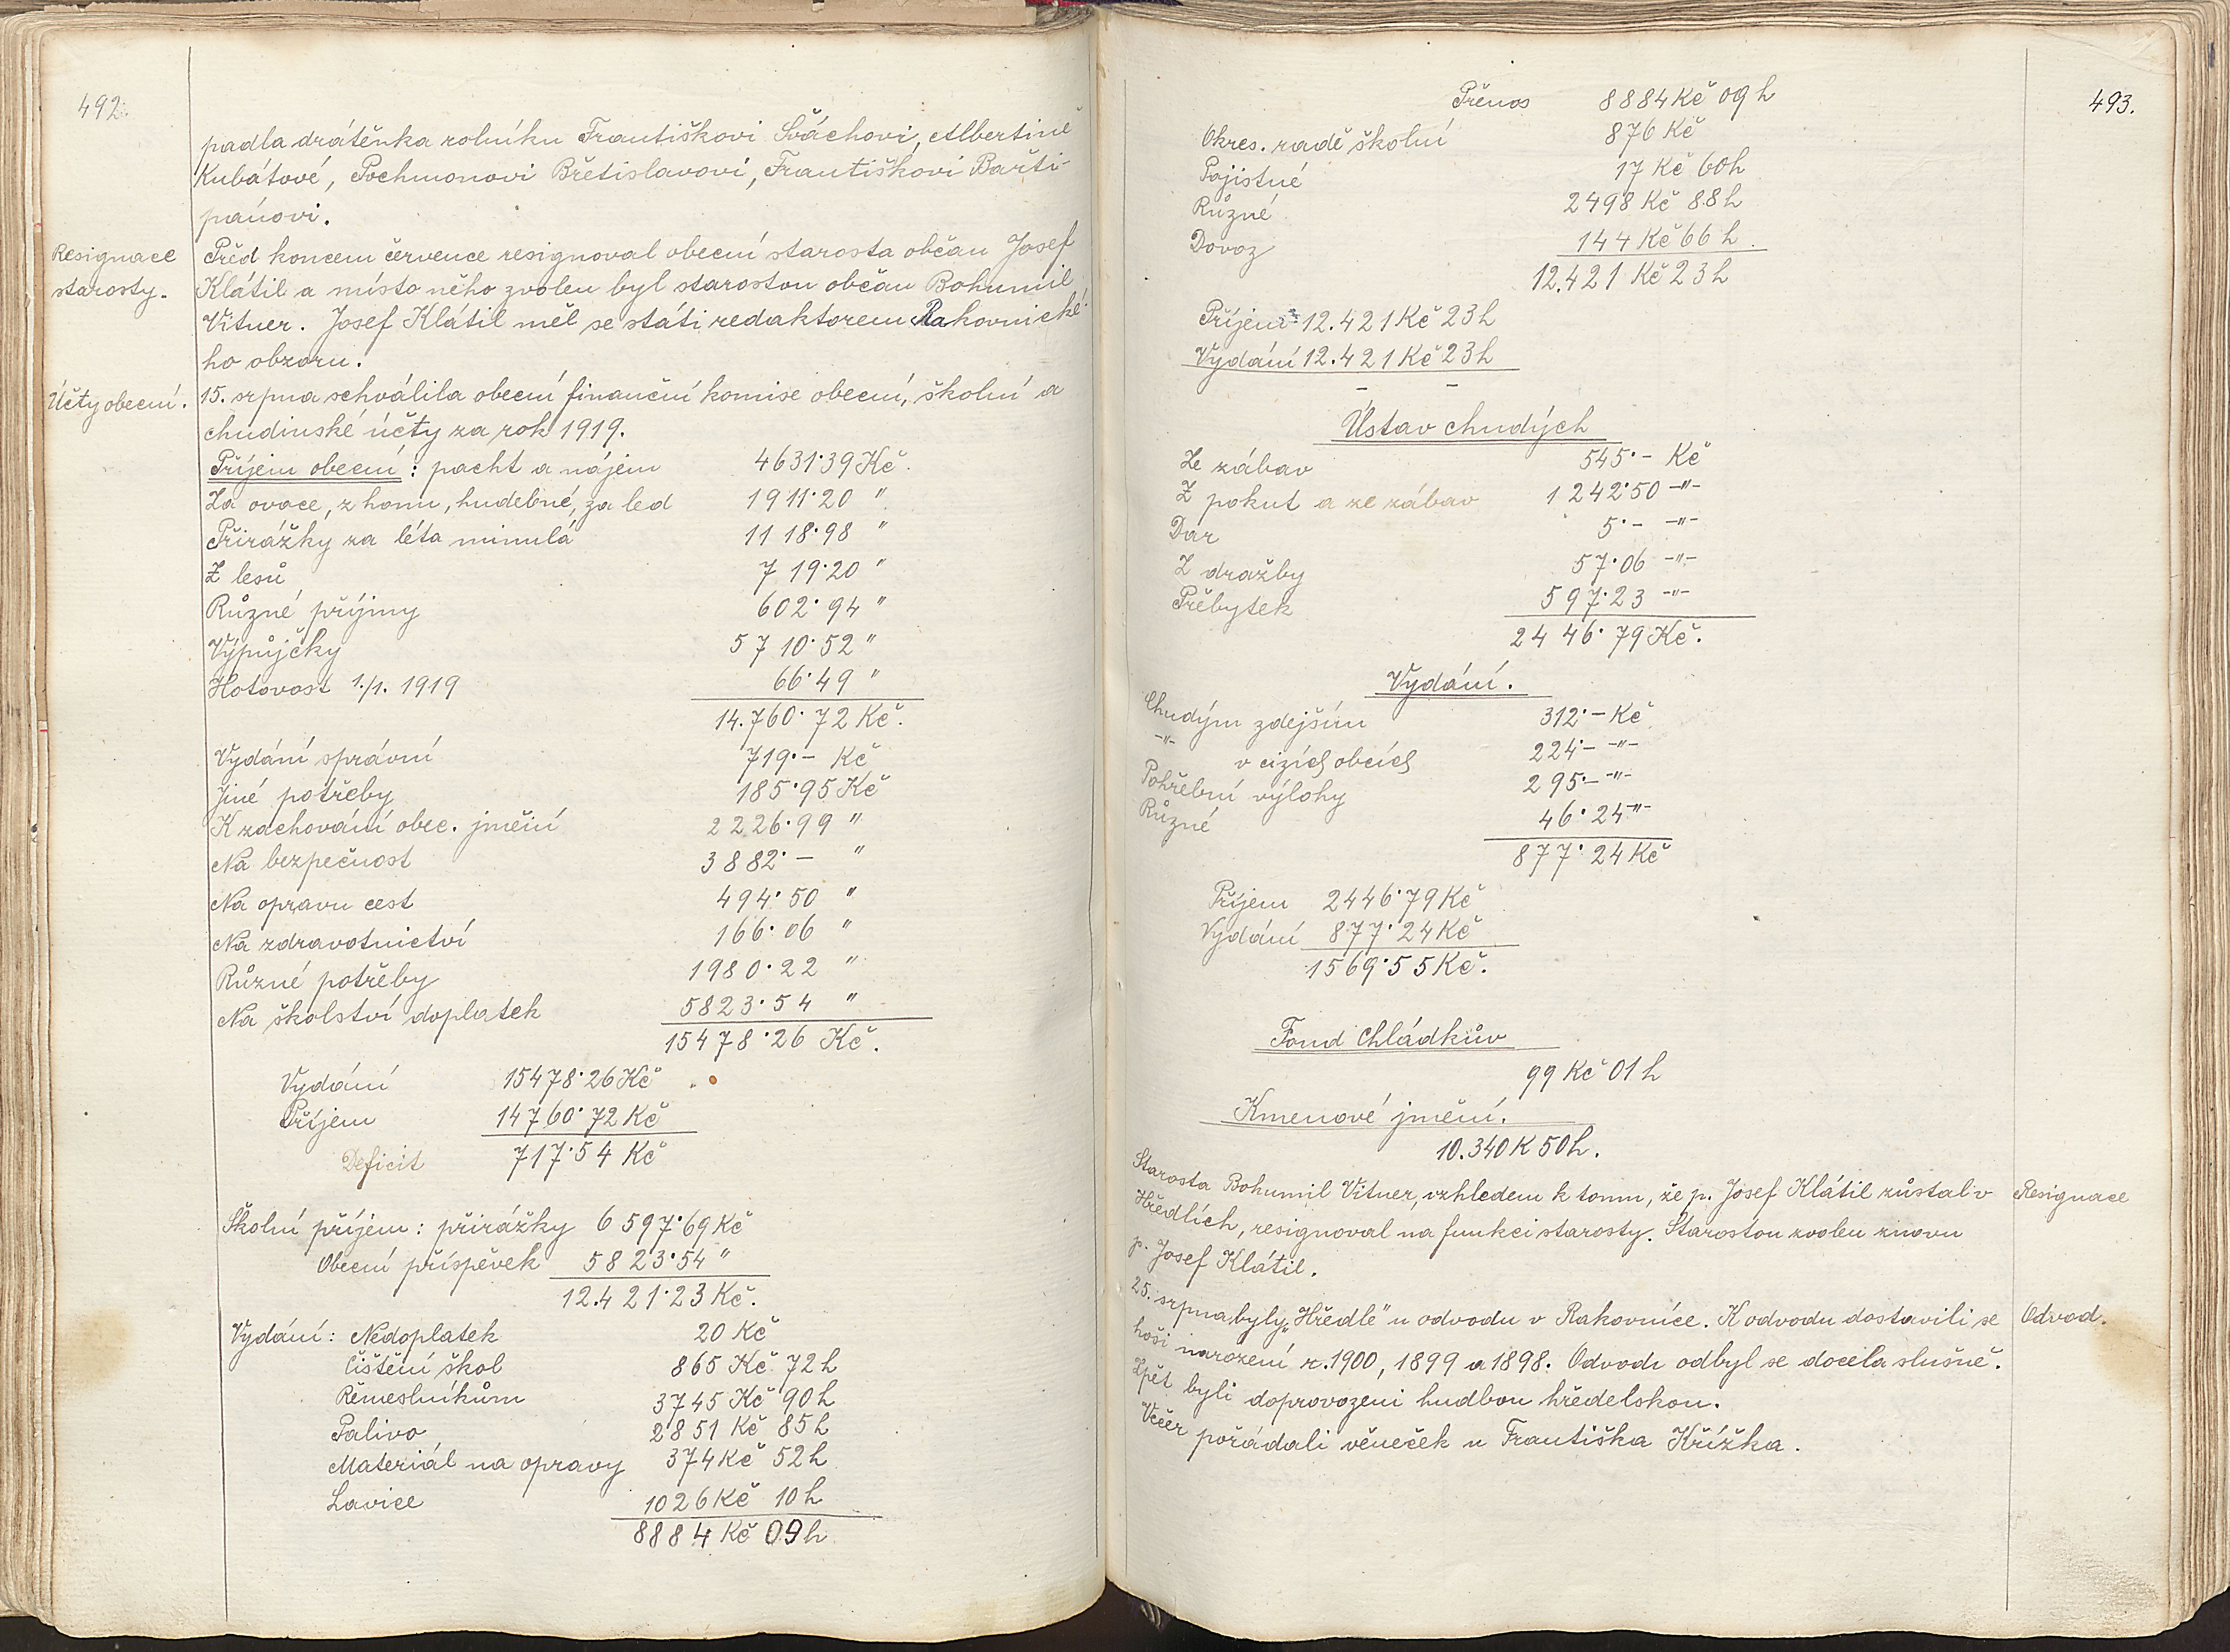 492.
padla drátěnka rolníku Františkovi Šváchovi, Albertině
Kubátové, Pochmonovi Břetislavovi, Františkovi Bašti-
pánovi.
Resignace
starosty.
Před koncem července resignoval obecní starosta občan Josef
Klátil a místo něho zvolen byl starostou občan Bohumil
Vitner. Josef Klátil měl se státi redaktorem Rakovnické-
ho obzoru.
Účty obecní.
15. srpna schválila obecní finanční komise obecní, školní a
chudinské účty za rok 1919.
Příjem obecní: pacht a nájem 4631·39 Kč.
Za ovoce, z honu, hudebné, za led 1911·20 "
Přirážky za léta minulá 1118·98 "
Z lesů 719·20 "
Různé příjmy 602·94 "
Výpůjčky 5710·52 "
Hotovost 1./1. 1919 66·49 "
14.760·72 Kč.
Vydání správní 719·– Kč
Jiné potřeby 185·95 Kč
K zachování obec. jmění 2226·99 "
Na bezpečnost 3882·– "
Na opravu cest 494·50 "
Na zdravotnictví 166·06 "
Různé potřeby 1980·22 "
Na školství doplatek 5823·54 "
15478·26 Kč.
Vydání 15478·26 Kč
Příjem 14760·72 Kč
Deficit 717·54 Kč
Školní příjem: přirážky 6597·69 Kč
Obecní příspěvek 5823·54 "
12.421·23 Kč.
Vydání: Nedoplatek 20 Kč
Čištění škol 865 Kč 72 h
Řemeslníkům 3745 Kč 90 h
Palivo 2851 Kč 85 h
Materiál na opravy 374 Kč 52 h
Lavice 1026 Kč 10 h
8884 Kč 09 h
493.
Přenos 8884 Kč 09 h
Okres. radě školní 876 Kč
Pojistné 17 Kč 60 h
Různé 2498 Kč 88 h
Dovoz 144 Kč 66 h.
12.421 Kč 23 h
Příjem 12.421 Kč 23 h
Vydání 12.421 Kč 23 h
– –
Ústav chudých
Ze zábav 545·– Kč
Z pokut a ze zábav 1242·50 –"–
Dar 5·– –"–
Z dražby 57·06 –"–
Přebytek 597·23 –"–
2446·79 Kč.
Vydání.
Chudým zdejším 312·– Kč
–"– v cizích obcích 224·– –"–
Pohřební výlohy 295·– –"–
Různé 46·24 –"–
877·24 Kč
Příjem 2446·79 Kč
Vydání 877·24 Kč
1569·55 Kč.
Fond Chládkův
99 Kč 01 h
Kmenové jmění.
10.340 K 50 h.
Starosta Bohumil Vitner, vzhledem k tomu, že p. Josef Klátil zůstal v
Resignace
Hředlích, resignoval na funkci starosty. Starostou zvolen znovu
p. Josef Klátil.
25. srpna byly „Hředle" u odvodu v Rakovníce. K odvodu dostavili se
Odvod.
hoši narození r. 1900, 1899 a 1898. Odvod odbyl se docela slušně.
Zpět byli doprovozeni hudbou hředelskou.
Večer pořádali věneček u Františka Křížka.